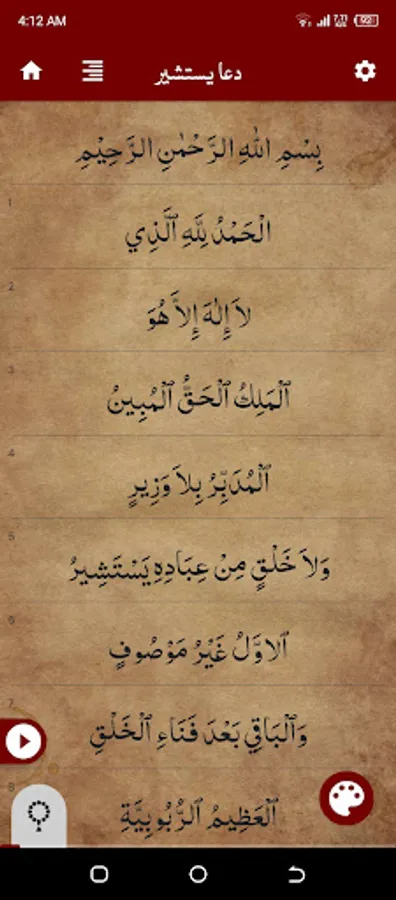 4:12 AM
دعا یستشیر
بِسْمِ اللهِ الرَّحْمٰنِ الرَّحِيْمِ
1
الْحَمْدُ لِلَّهِ ٱلَّذِي
2
لاَ إِلٰهَ إِلاَّ هُوَ
3
ٱلْمَلِكُ ٱلْحَقُّ ٱلْمُبِينُ
4
ٱلْمُدَبِّرُ بِلاَ وَزِيرٍ
5
وَلاَ خَلْقٍ مِنْ عِبَادِهِ يَسْتَشِيرُ
6
ٱلاوَّلُ غَيْرُ مَوْصُوفٍ
7
وَٱلْبَاقِي بَعْدَ فَنَاءِ ٱلْخَلْقِ
8
ٱلْعَظِيمُ ٱلرُّبُوبِيَّةِ